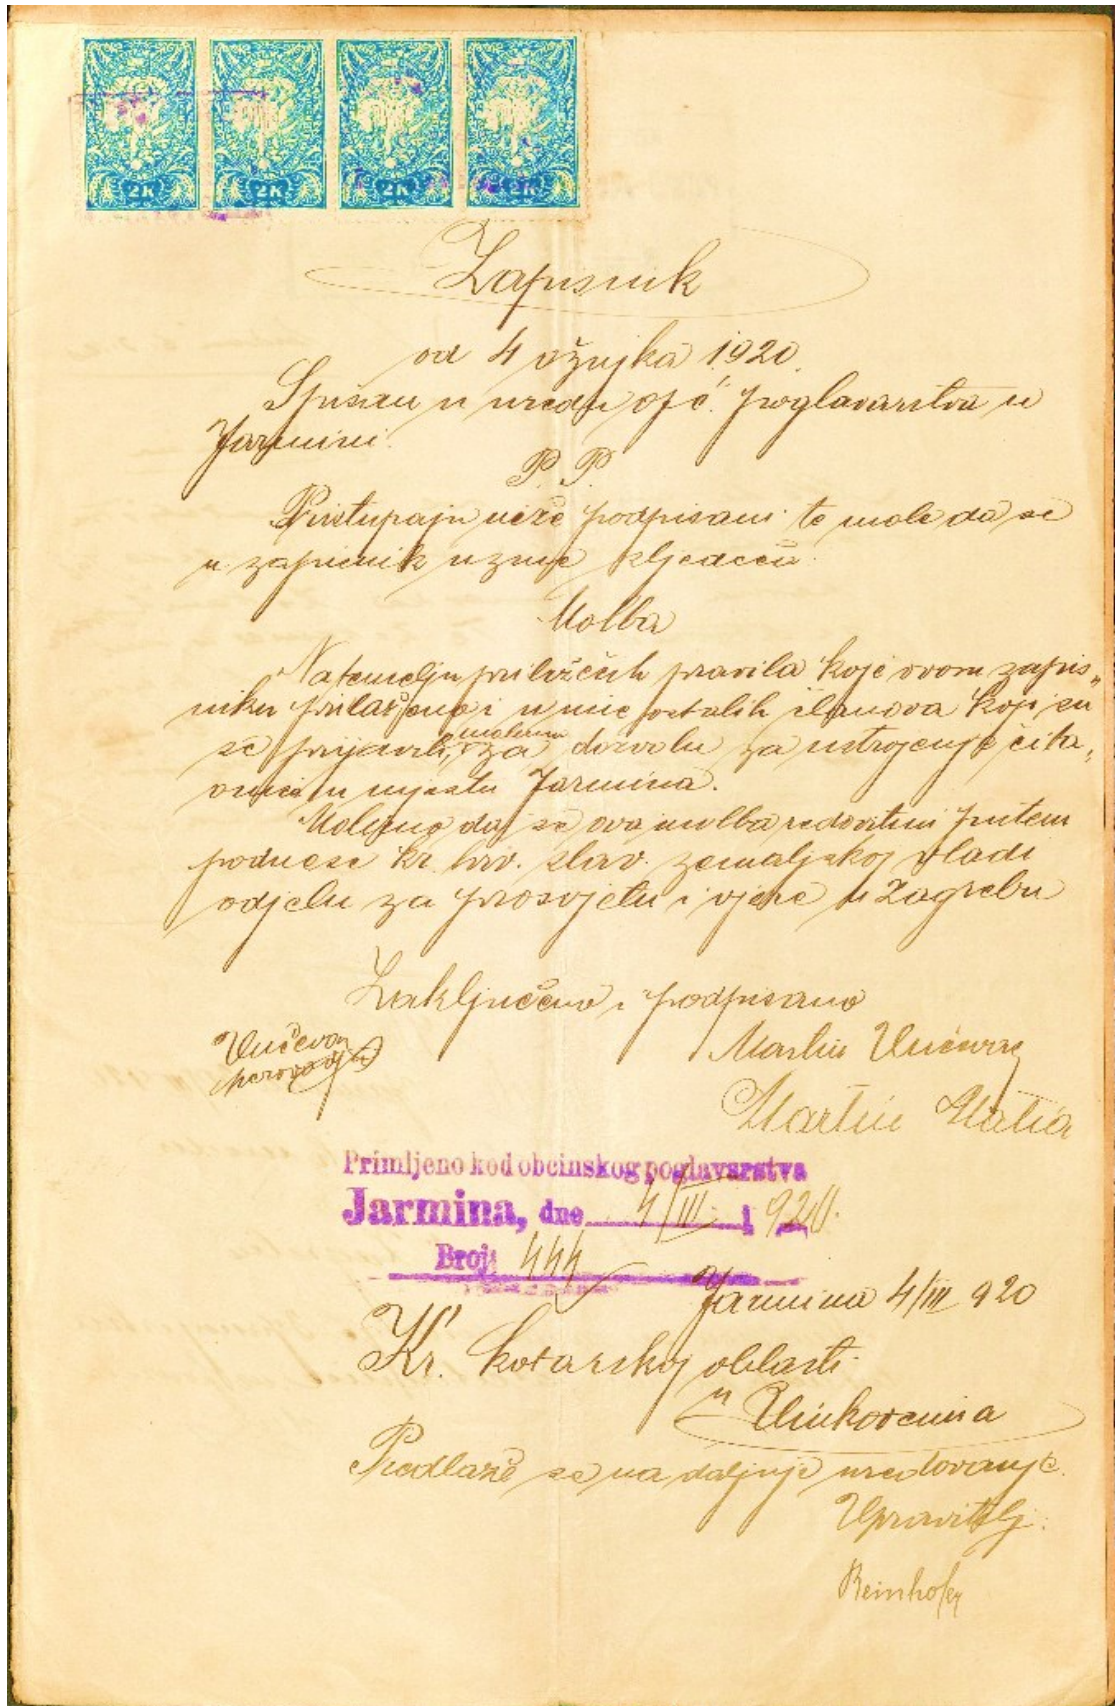 2K 2K 2K 2K
Zapisnik
od 4 ožujka 1920.
Spisan u uredu opć. poglavarstva u
Jarmini.
P. P.
Pristupaju niže podpisani te mole da se
u zapisnik uzme sljedeća
Molba
Na temelju priležećih pravila koje ovom zapis„
niku prilažemo i u ime ostalih članova koji su
se prijavili, molimo za dozvolu za ustrojenje čita„
onice u mjestu Jarmina.
Molimo da se ova molba redovitim putem
podnese kr. hrv. slav. zemaljskoj vladi
odjelu za prosvjetu i vjere u Zagrebu
Zaključeno i podpisano
Martin
Martin Matia
Primljeno kod obcinskog poglavarstva
Jarmina, dne 4/III 1920.
Broj: 444
Jarmina 4/III 920
Kr. kotarskoj oblasti
u Vinkovcima
Predlaže se na daljnje uredovanje.
Upravitelj:
Reinhofer